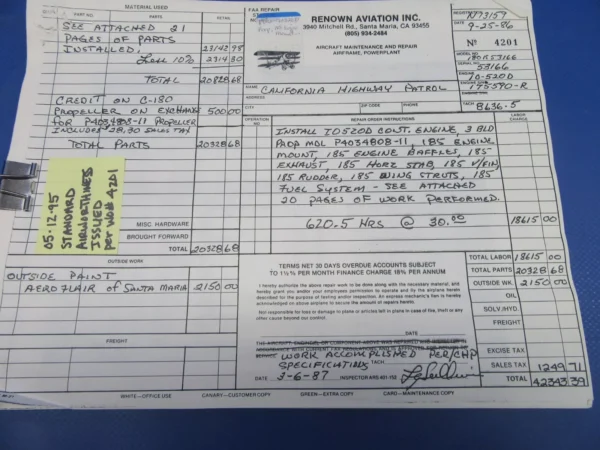 MATERIAL USED
PART NO.
PARTS
RETAIL
SEE ATTACHED 21
PAGES OF PARTS
INSTALLED. 23142 98
Less 10% 2314 30
TOTAL 20828 68
CREDIT ON C-180
PROPELLER ON EXCHANGE 500 00
FOR P4034808-11 PROPELLER
INCLUDES 28.30 SALES TAX
TOTAL PARTS 20328 68
05-12-95
STANDARD
AIRWORTHINESS
ISSUED
per WO# 4201
MISC HARDWARE
BROUGHT FORWARD
TOTAL 20328 68
OUTSIDE WORK
OUTSIDE PAINT
AERO FLAIR OF SANTA MARIA 2150 00
FREIGHT
FAA REPAIR
RENOWN AVIATION INC.
3940 Mitchell Rd., Santa Maria, CA 93455
(805) 934-2484
AIRCRAFT MAINTENANCE AND REPAIR
AIRFRAME, POWERPLANT
N93159
DATE 9-25-86
Nº 4201
53166
IO-520D
175590-R
TACH 8636.5
NAME CALIFORNIA HIGHWAY PATROL
ADDRESS
CITY
ZIP CODE
PHONE
OPERATION NO
REPAIR ORDER INSTRUCTIONS
LABOR CHARGE
INSTALL IO520D CONT. ENGINE, 3 BLD
PROP MDL P4034808-11, 185 ENGINE
MOUNT, 185 ENGINE BAFFLES, 185
EXHAUST 185 HORZ STAB, 185 V/FIN,
185 RUDDER, 185 WING STRUTS, 185
FUEL SYSTEM - SEE ATTACHED
20 PAGES OF WORK PERFORMED.
620.5 HRS @ 30.00 18615 00
TERMS NET 30 DAYS OVERDUE ACCOUNTS SUBJECT
TO 1½% PER MONTH FINANCE CHARGE 18% PER ANNUM
I hereby authorize the above repair work to be done along with the necessary material; and
hereby grant you and/or your employees permission to operate and fly the airplane herein
described for the purpose of testing and/or inspection. An express mechanic's lien is hereby
acknowledged on above airplane to secure the amount of repairs thereto.
Not responsible for loss or damage to plane or articles left in plane in case of fire, theft or any
other cause beyond our control.
DATE
WORK ACCOMPLISHED PER/CHP
SPECIFICATIONS
TACH
DATE 3-6-87
INSPECTOR
TOTAL LABOR 18615 00
TOTAL PARTS 20328 68
OUTSIDE WK. 2150 00
OIL
SOLV./HYD.
FREIGHT
EXCISE TAX
SALES TAX 1249 71
TOTAL 42343.39
WHITE—OFFICE USE
CANARY—CUSTOMER COPY
GREEN—EXTRA COPY
CARD—MAINTENANCE COPY